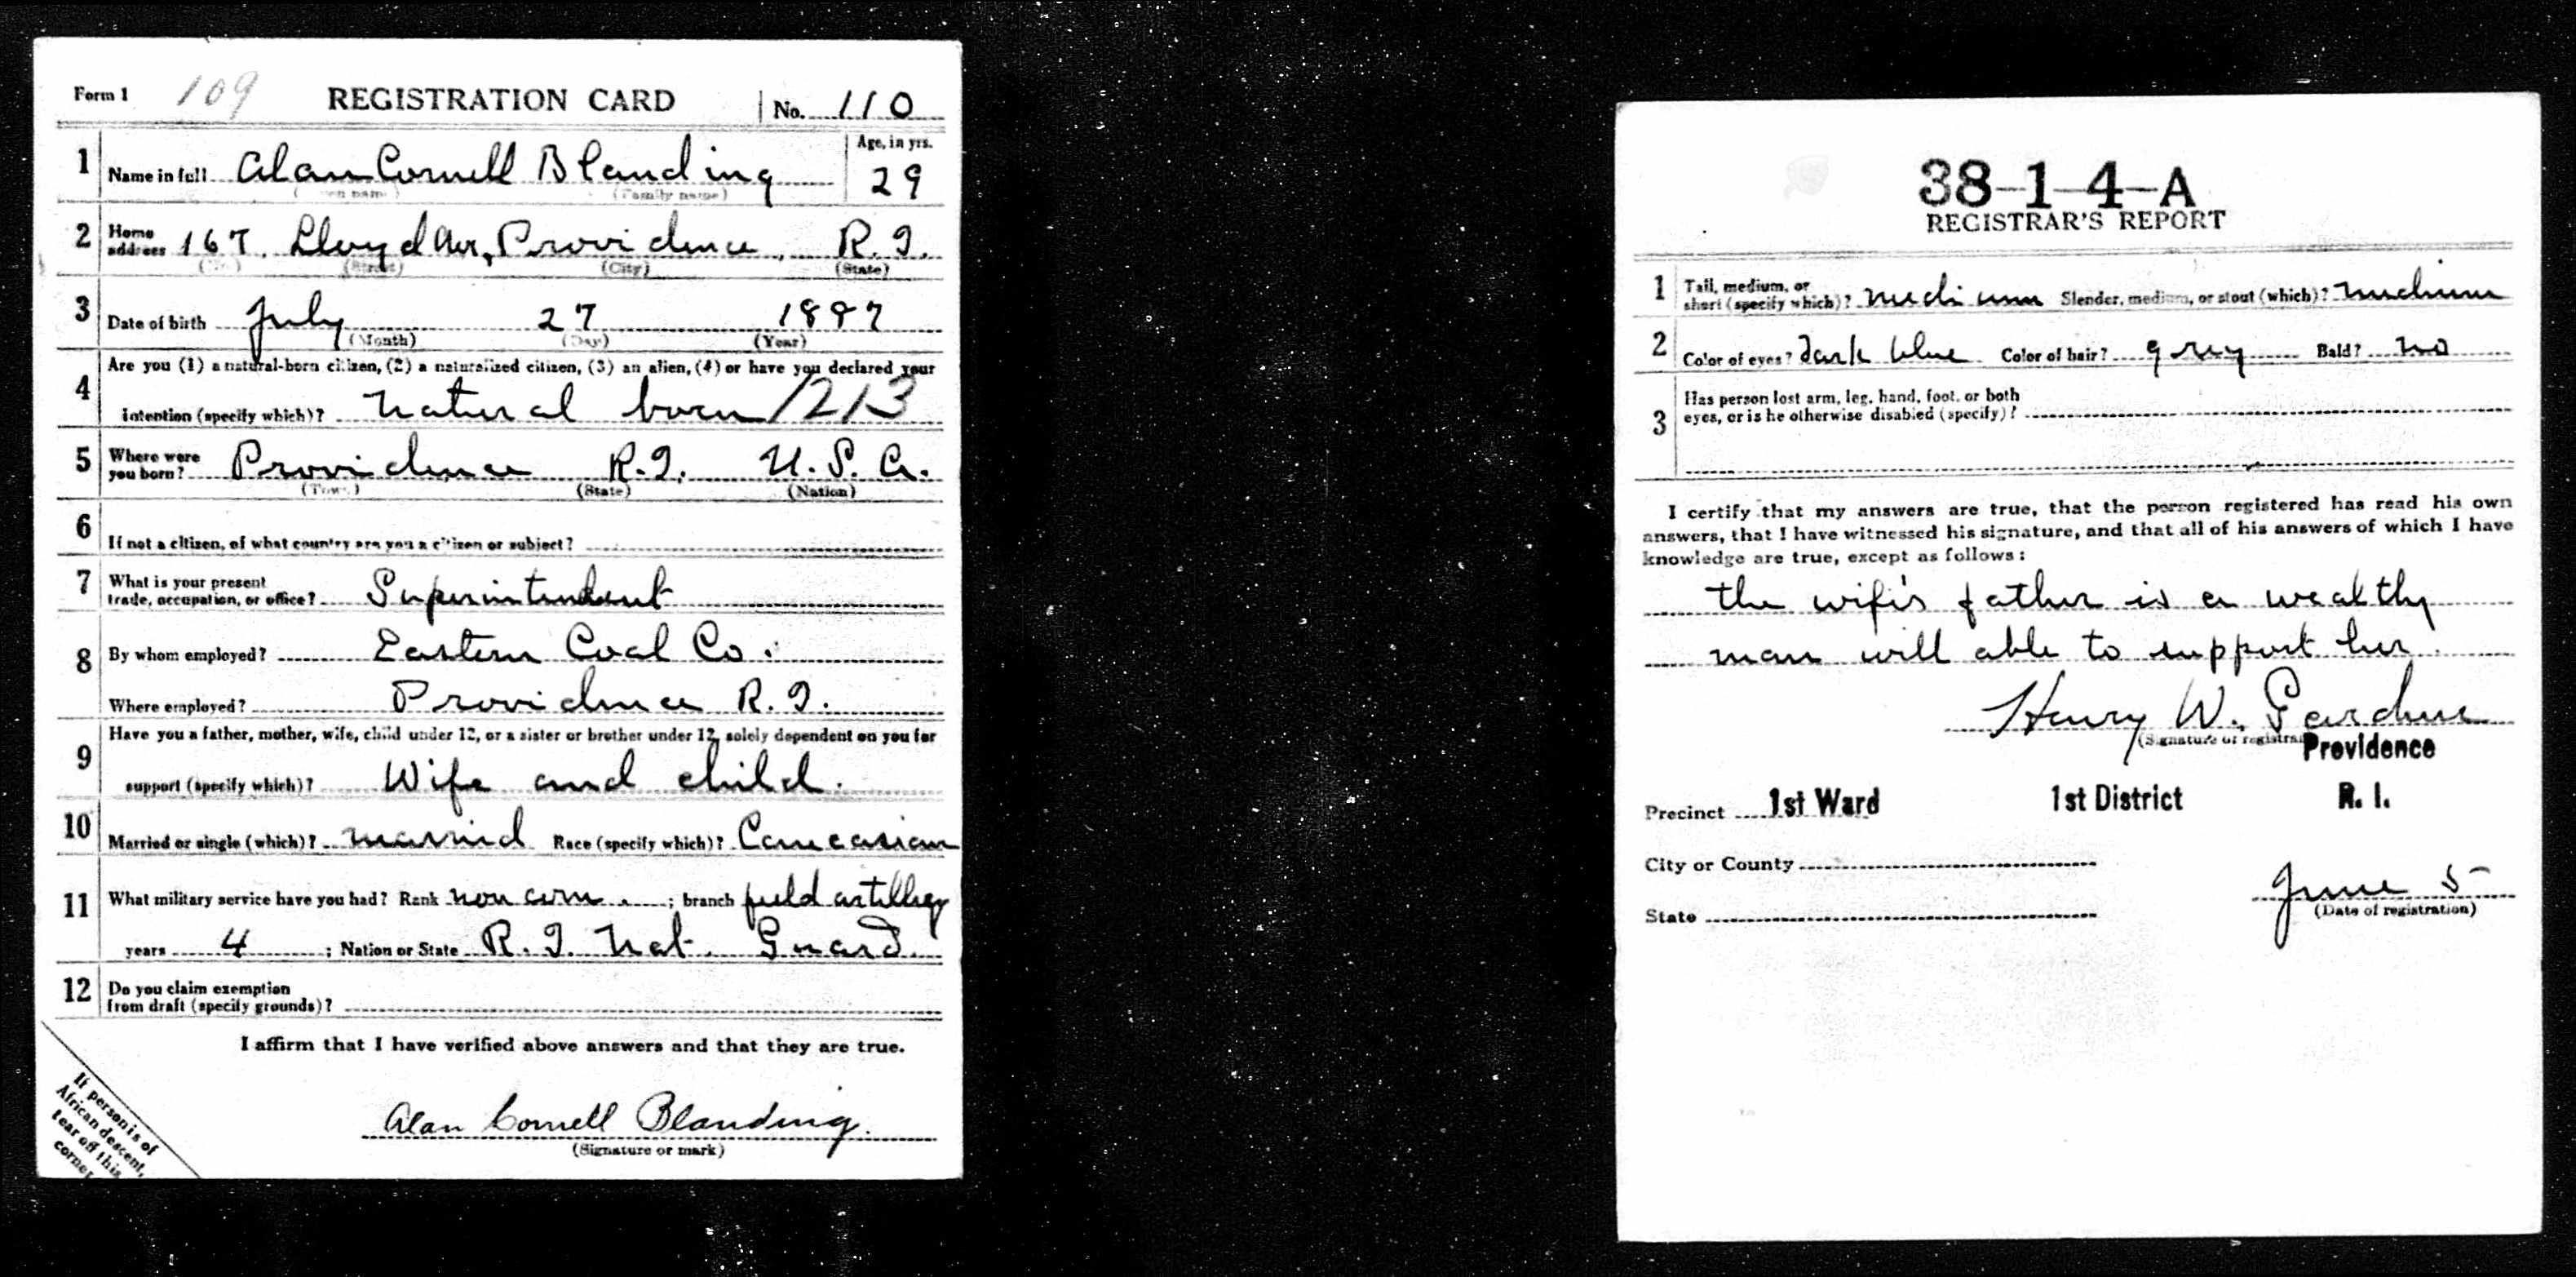 Form 1 109 REGISTRATION CARD No. 110
1 Name in full Alan Cornell Blanding Age, in yrs. 29
(Family name)
2 Home address 167 Lloyd Ave, Providence, R.I.
(No.) (Street) (City) (State)
3 Date of birth July 27 1887
(Month) (Day) (Year)
4 Are you (1) a natural-born citizen, (2) a naturalized citizen, (3) an alien, (4) or have you declared your
intention (specify which)? natural born 1213
5 Where were you born? Providence R.I. U.S.A.
(Town) (State) (Nation)
6 If not a citizen, of what country are you a citizen or subject?
7 What is your present trade, occupation, or office? Superintendent
8 By whom employed? Eastern Coal Co.
Where employed? Providence R.I.
9 Have you a father, mother, wife, child under 12, or a sister or brother under 12, solely dependent on you for
support (specify which)? Wife and child.
10 Married or single (which)? married Race (specify which)? Caucasian
11 What military service have you had? Rank non com. ; branch field artillery
years 4 ; Nation or State R.I. Nat. Guard.
12 Do you claim exemption
from draft (specify grounds)?
I affirm that I have verified above answers and that they are true.
Alan Cornell Blanding.
(Signature or mark)
If person is of
African descent,
tear off this
corner
38-1-4-A
REGISTRAR'S REPORT
1 Tall, medium, or
short (specify which)? medium Slender, medium, or stout (which)? medium
2 Color of eyes? dark blue Color of hair? grey Bald? no
3 Has person lost arm, leg, hand, foot, or both
eyes, or is he otherwise disabled (specify)?
I certify that my answers are true, that the person registered has read his own
answers, that I have witnessed his signature, and that all of his answers of which I have
knowledge are true, except as follows:
the wife's father is a wealthy
man will able to support her.
Henry W. Gardner
(Signature of registrar)
Providence
Precinct 1st Ward 1st District R. I.
City or County
State
June 5
(Date of registration)